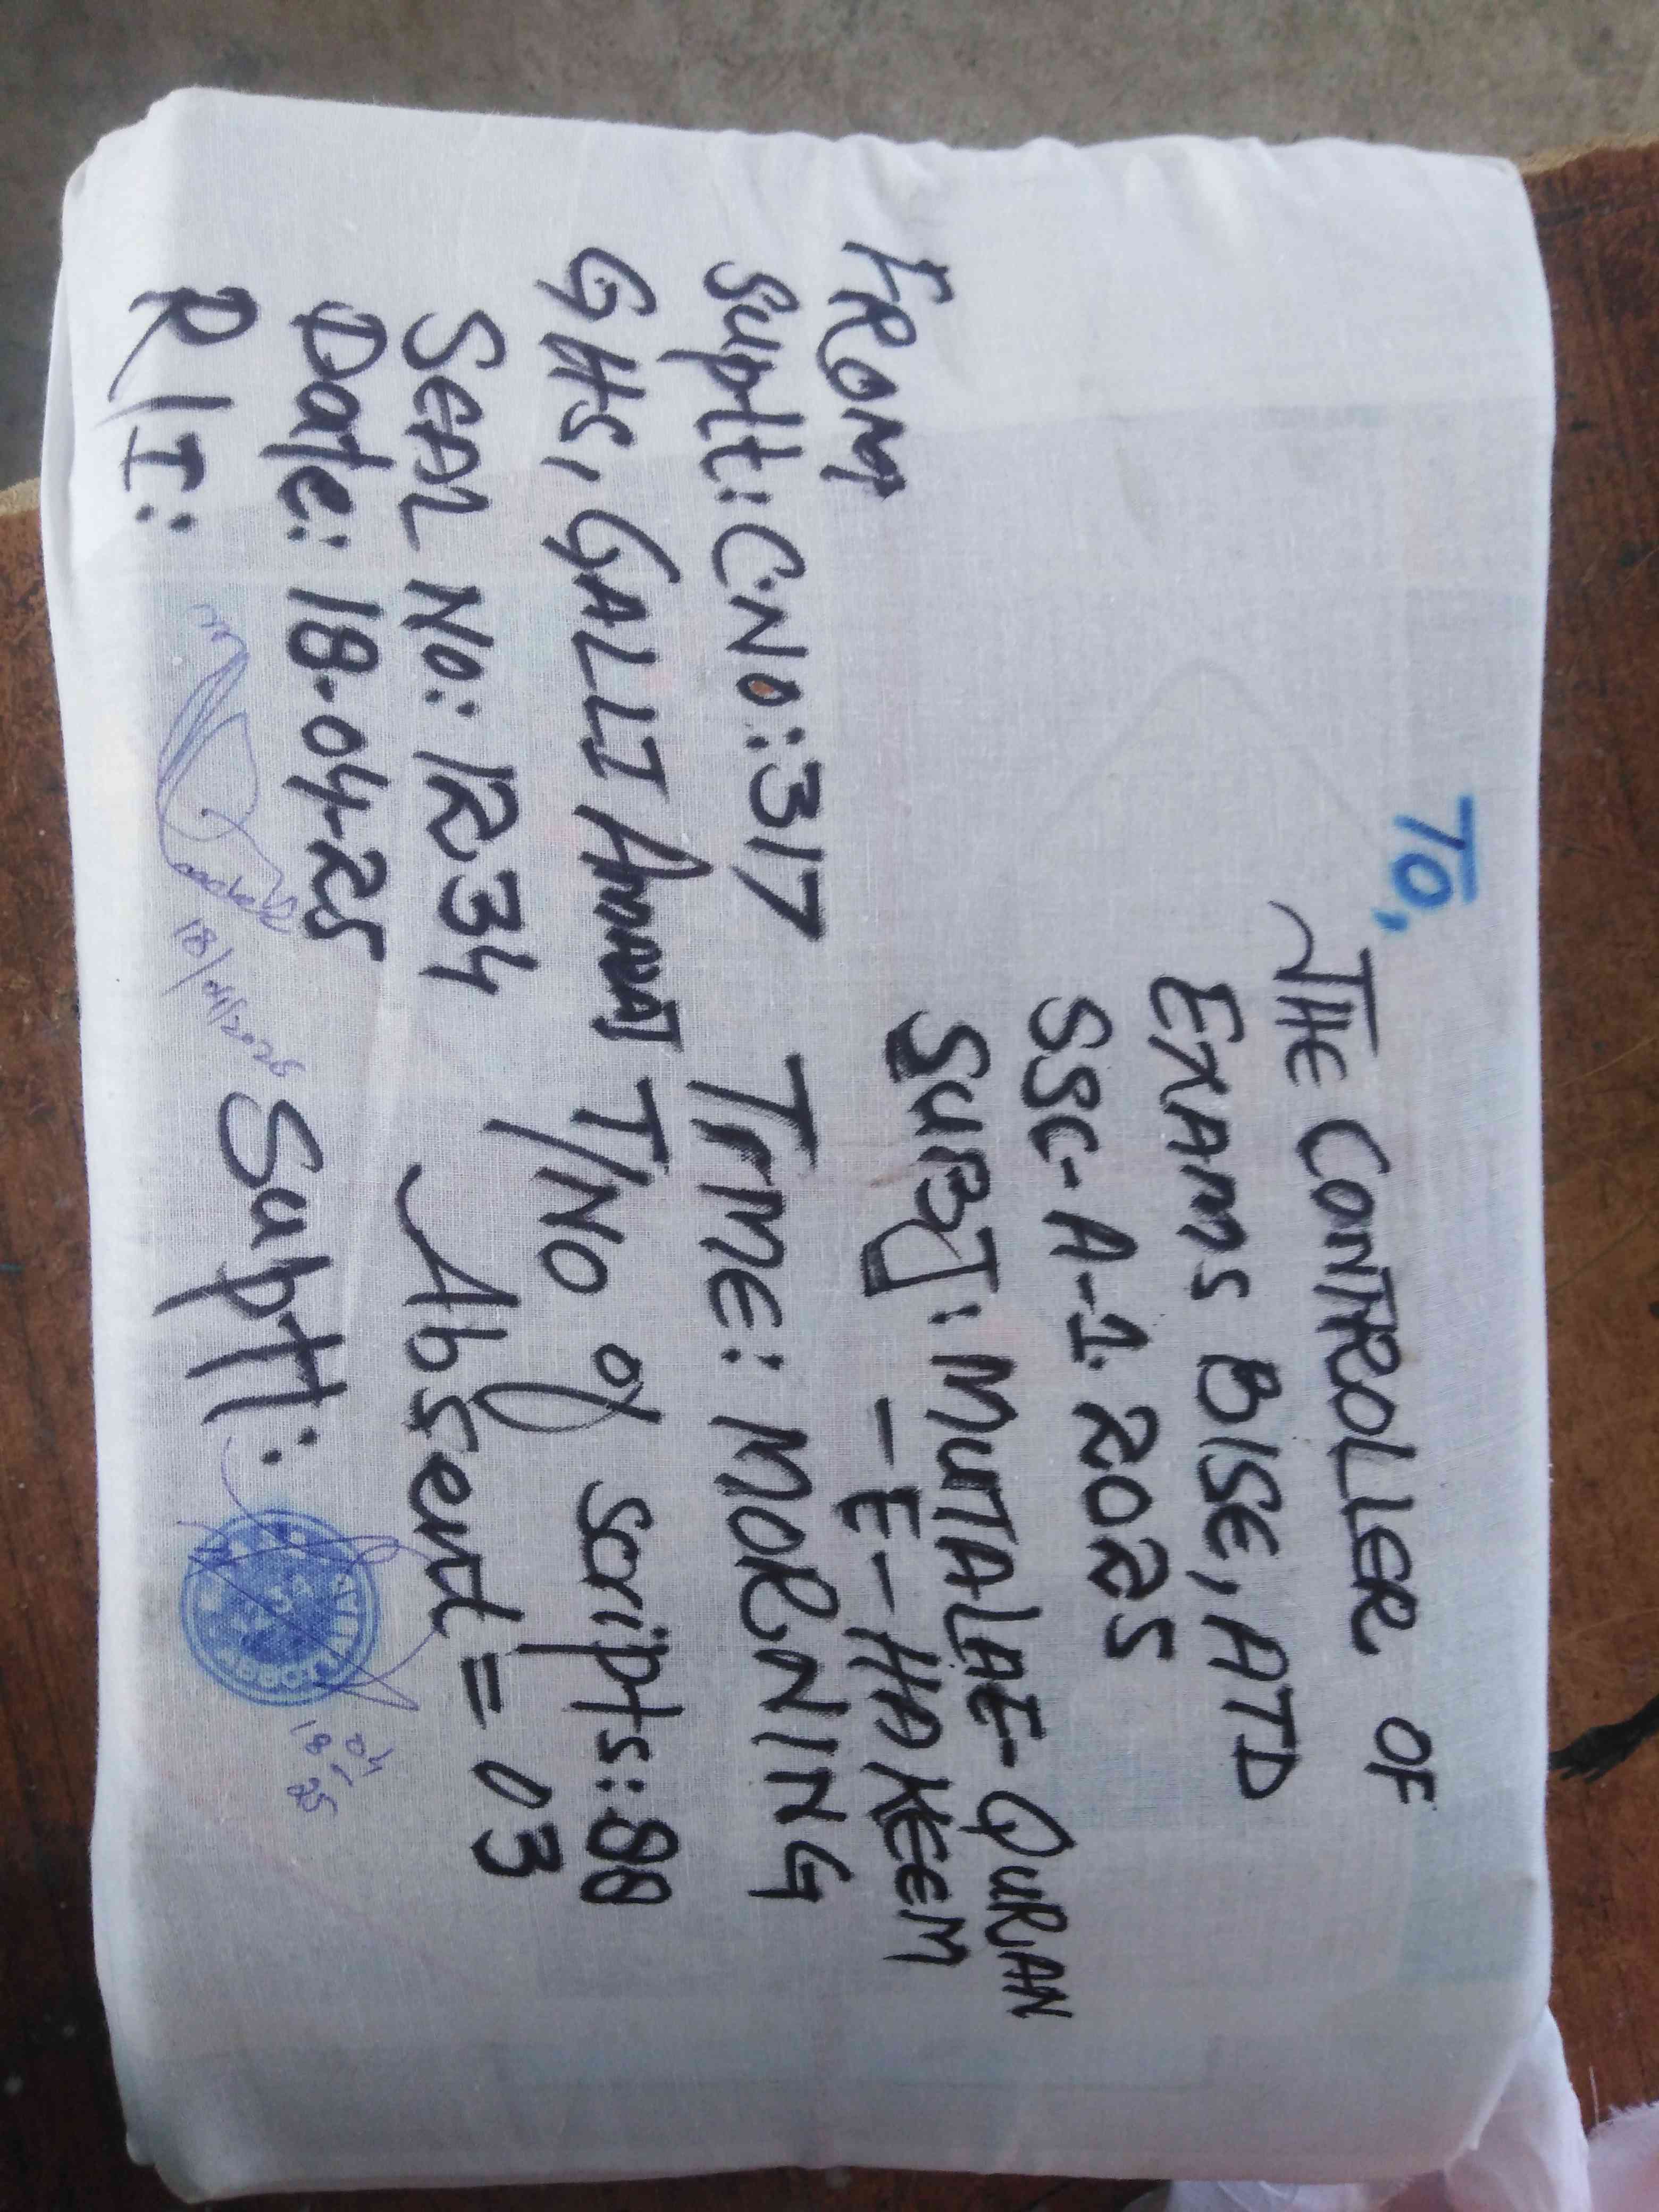 TO,
THE CONTROLLER OF
EXAMS BISE, ATD
SSC-A-1. 2025
SUBJ: MUTALAE-QURAN
-E-HAKEEM
FROM
Suptt: C.No: 317
TIME: MORNING
GHS, GALLI
T/No of scripts: 88
SEAL No: R.34
Absent = 03
Date: 18-04-25
R/I:
18/04/2025
Suptt:
18
04
25